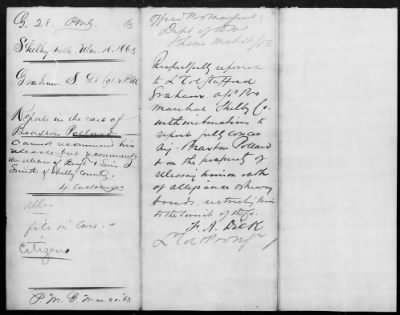 G. 28.
Shelbyville, Mar. 10. 1863
Graham S. D.
Reports in the case of
Braxton Pollard
Cannot recommend his
release, but recommends
the release of
Smith of Shelby County.
4 Enclosures
file in Case.
Citizens
P. M. G. Mar. 20 '63
Office Pro Marshal
Dept of
Respectfully referred
to Lt Col Stafford
Graham
Marshal Shelby Co.
with instructions to
report fully concer
ning Braxton Pollard
& on the propriety of
releasing him on oath
of allegiance & heavy
bonds. restricting him
to the limits of
F. A. Dick
Lt Col &